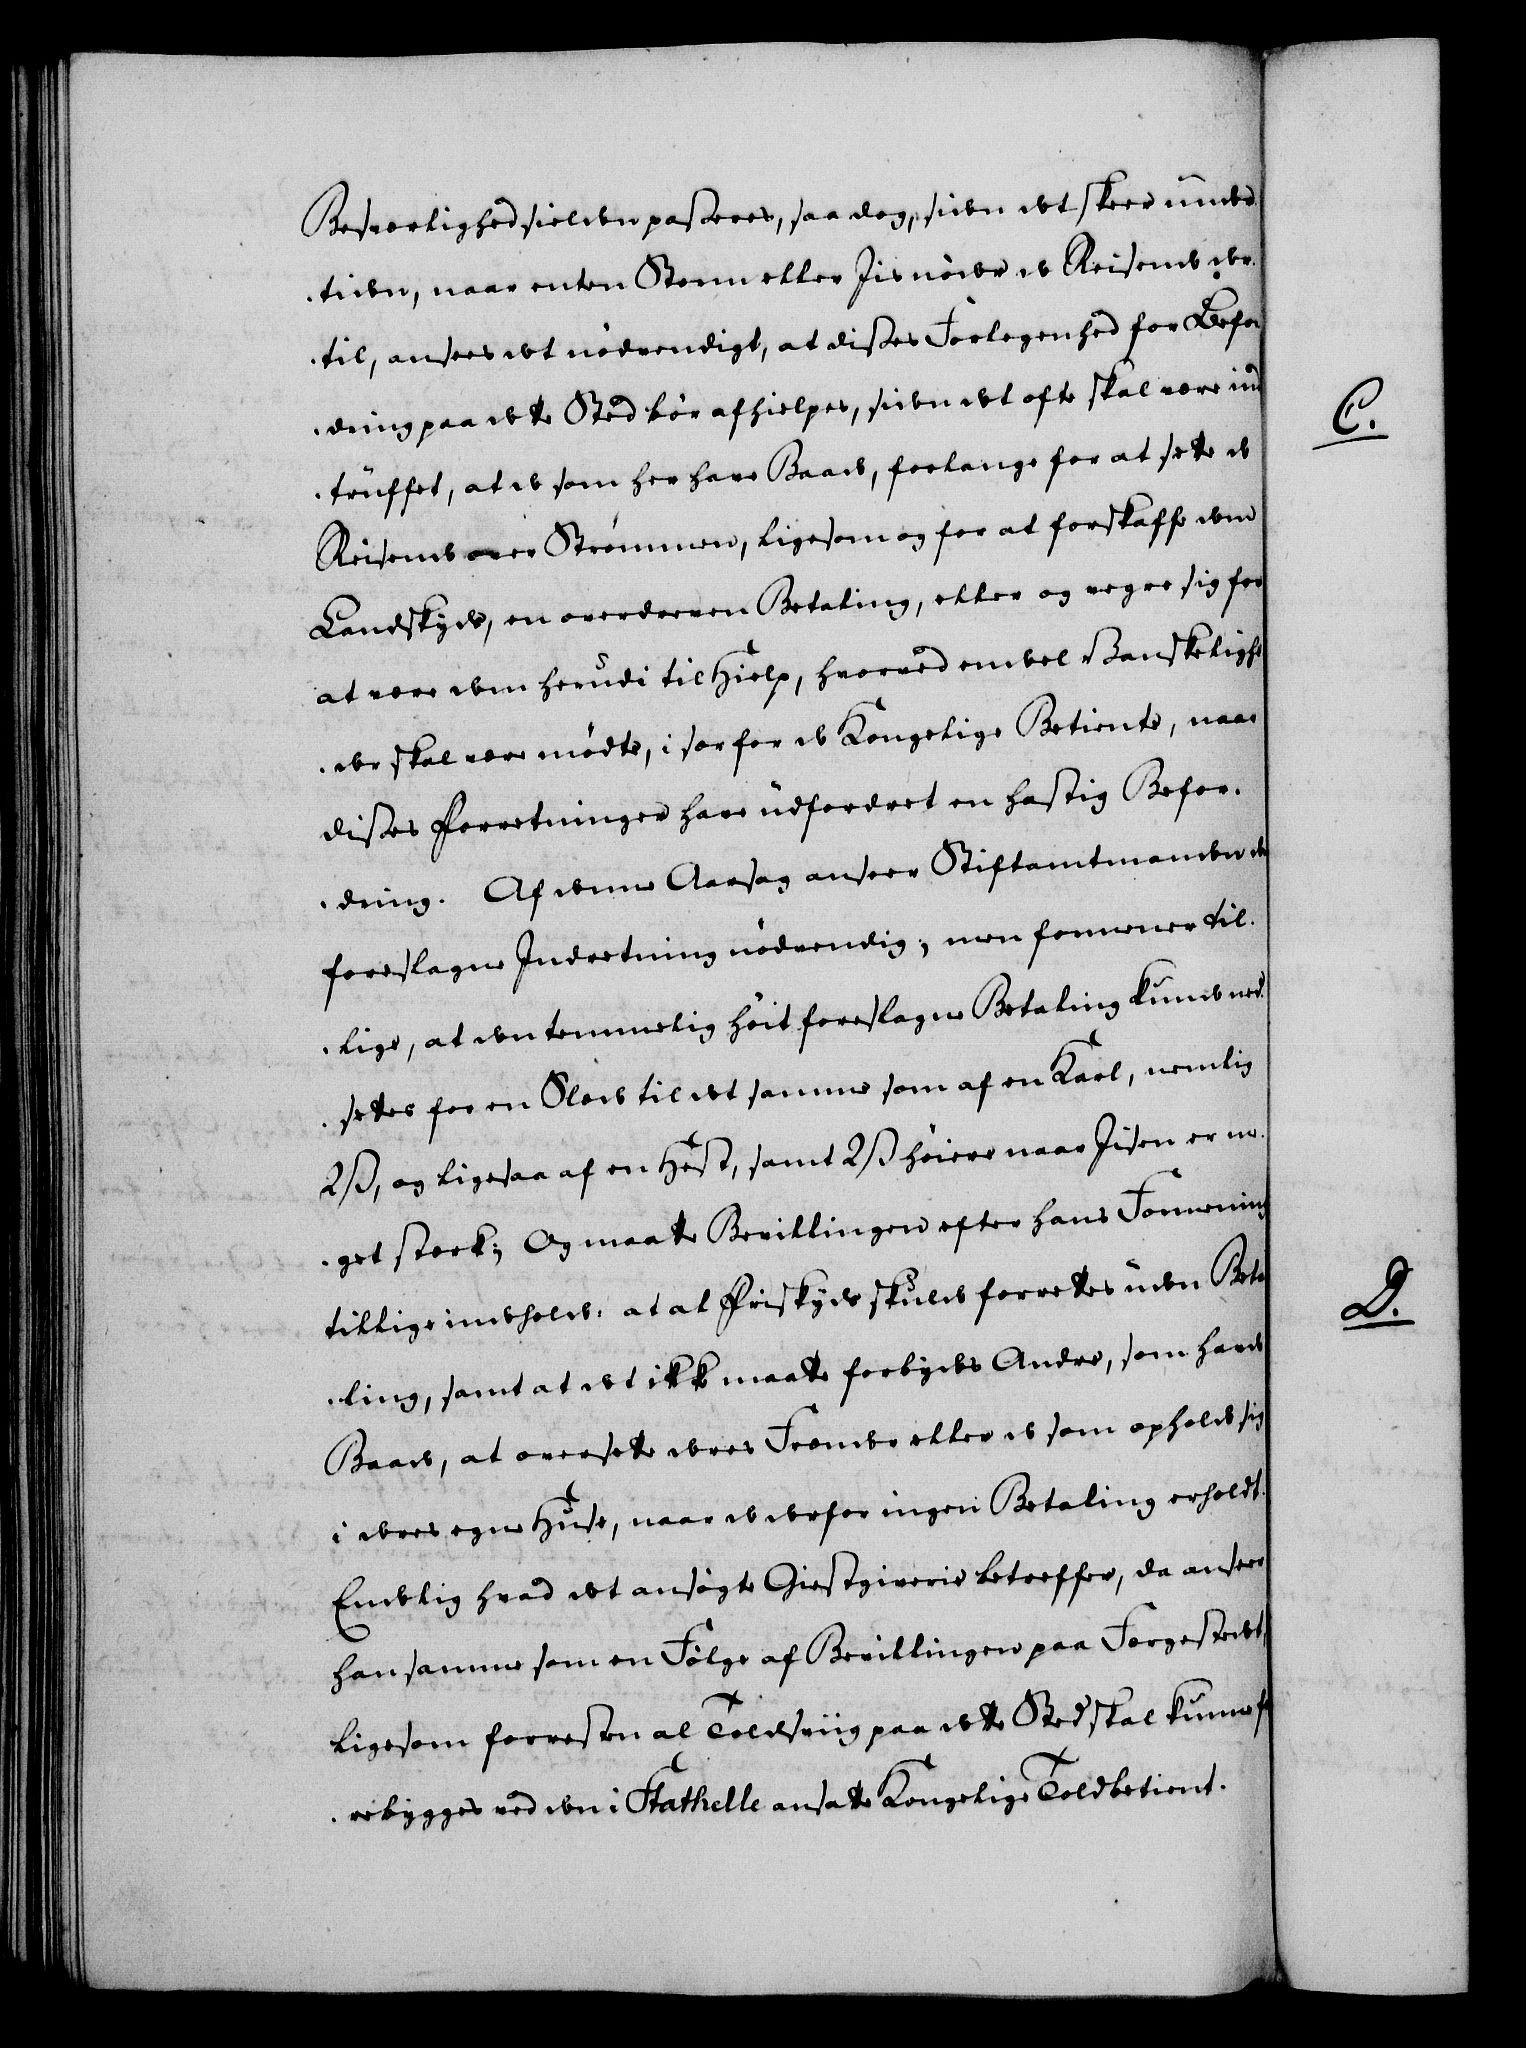 Besværlighed sielden passeres, saa dog, siden det skeer under
tiden, naar enten Storm eller Jis nöder de Reisende der
til, ansees det nödvendigt, at disses Forlegenhed for Befor
dring paa dette Sted bör afhielpes, siden det ofte skal være ind
truffet, at de som her have Baade, forlange for at sette de
Reisende over Strömmen, ligesom og for at forskaffe dem
Landskyds, en overdreven Betaling, eller og vegre sig for
at være dem herudi til Hielp, hvorved endeel Vanskelighed
der skal være mödte, i sær for de Kongelige Betiente, naar
disses Forretninger have udfordret en hastig Befor-
dring. Af denne Aarsag anseer Stiftamtmanden den
foreslagne Indretning nödvendig; men formener til-
lige, at den temmelig höit foreslagne Betaling kunde ned-
settes for en Slæde til det samme som af en Karl, nemlig
2 ß, og ligesaa af en Hest, samt 2 ß höiere naar Jisen er me-
get stærk; Og maatte Bevillingen efter hans Formening
tillige indeholde: at al Friskyds skulde forrettes uden Beta
ling, samt at det ikke maatte forbydes Andre, som havde
Baade, at oversette deres Fremder eller de som opholde sig
i deres egne Huse, naar de derfor ingen Betaling erholdt.
Endelig hvad det ansögte Giestgiverie betreffer, da anseer
han samme som en Fölge af Bevillingen paa Færgestedet,
ligesom forresten al Toldsviig paa dette Sted skal kunne f
rebygges ved den i Stathelle ansatte Kongelige Toldbetient.
C.
D.